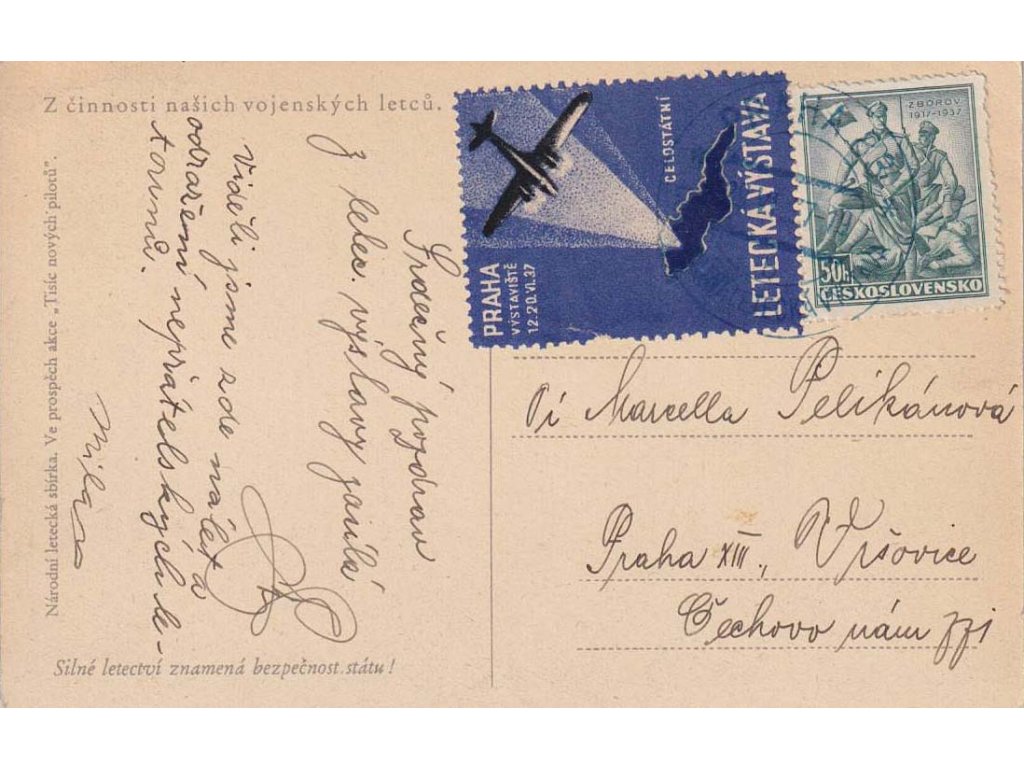 Z činnosti našich vojenských letců.
Národní letecká sbírka. Ve prospěch akce „Tisíc nových pilotů“.
Srdečný pozdrav
z letec. výstavy
Viděli jsme zde nálet a
odražení nepřátelských le-
tounů.
Míla
Silné letectví znamená bezpečnost státu!
CELOSTÁTNÍ
LETECKÁ VÝSTAVA
PRAHA
VÝSTAVIŠTĚ
12.-20.VI.37
ZBOROV
1917-1937
50h
ČESKOSLOVENSKO
Marcella Pelikánová
Praha XIII., Vršovice
Čechovo nám